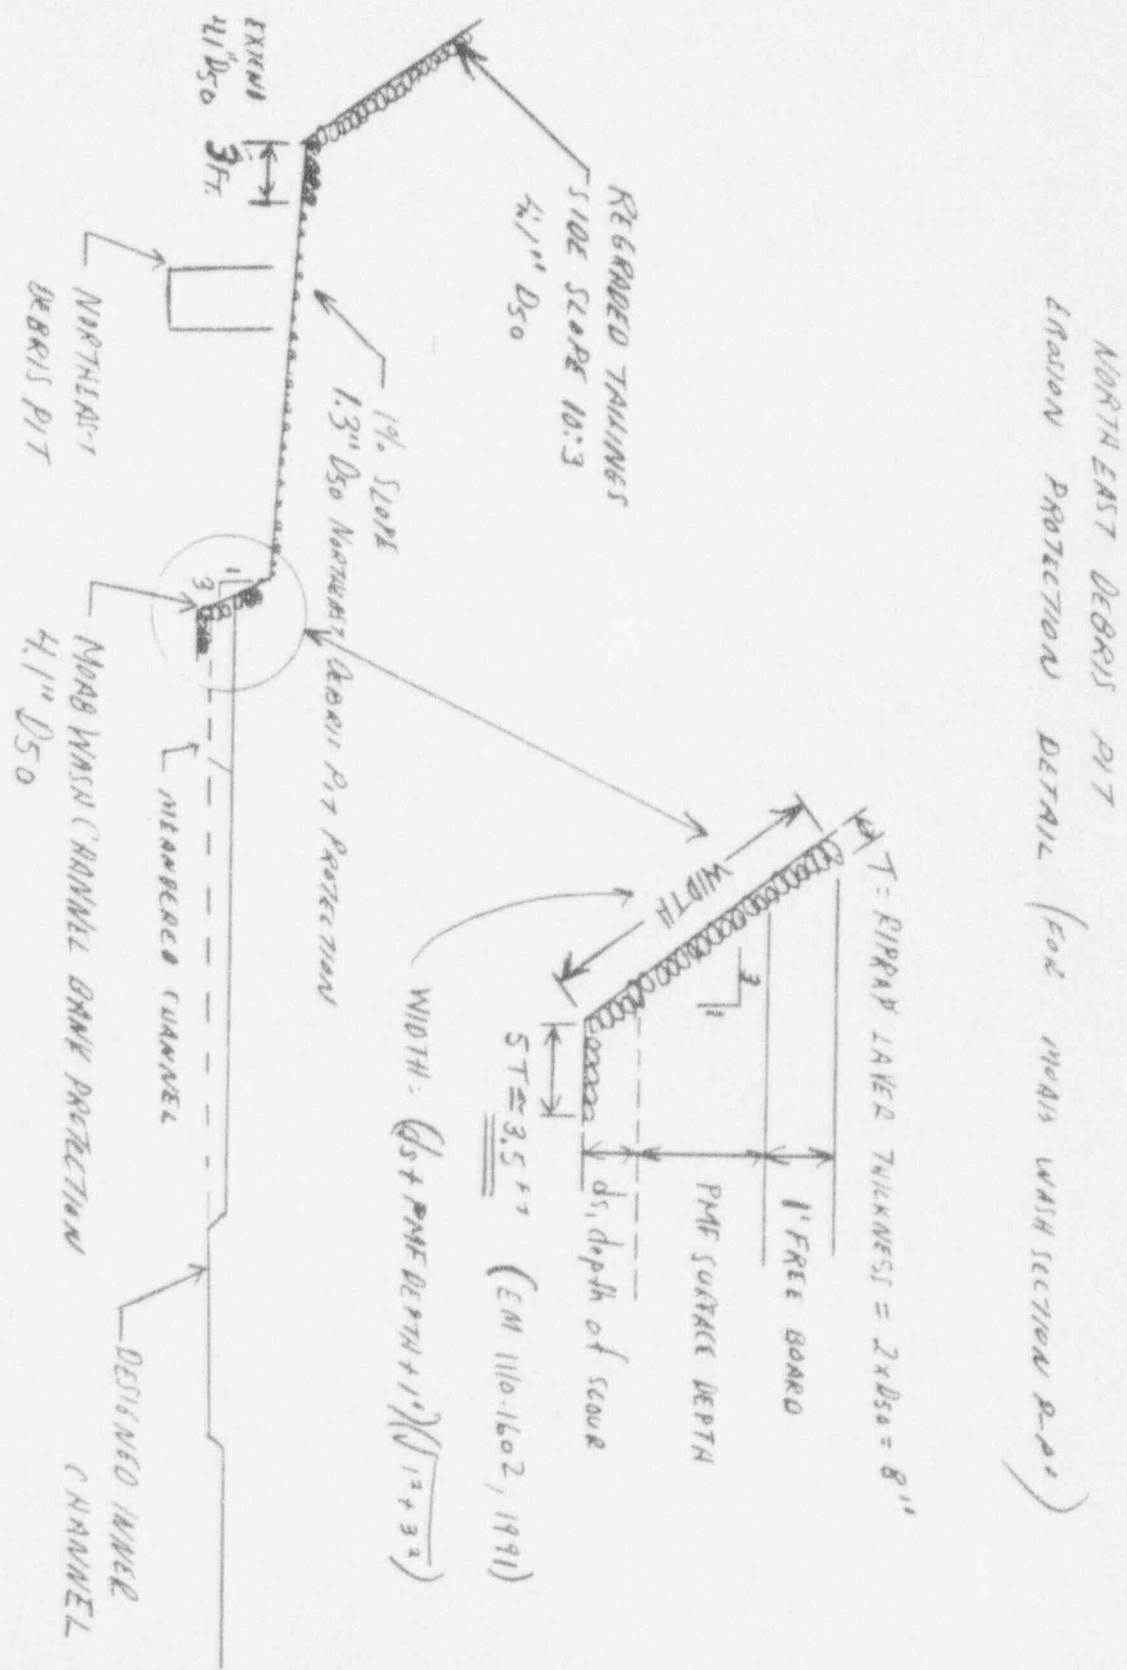 NORTHEAST DEBRIS PIT
EROSION PROTECTION DETAIL (FOR MOAB WASH SECTION
T = RIPRAP LAYER THICKNESS = 2xD50 = 8"
1' FREE BOARD
PMF SURFACE DEPTH
ds, depth of scour
WIDTH
3
1
5T ≅ 3.5 FT (EM 1110-1602, 1991)
WIDTH = (ds + PMF DEPTH + 1')(√1² + 3²)
REGRADED TAILINGS
SIDE SLOPE 10:3
4.1" D50
EXTEND
4.1" D50 3 FT.
1% SLOPE
1.3" D50 NORTHEAST DEBRIS PIT PROTECTION
NORTHEAST
DEBRIS PIT
1
3
MEANDERED CHANNEL
MOAB WASH CHANNEL BANK PROTECTION
4.1" D50
DESIGNED INNER
CHANNEL